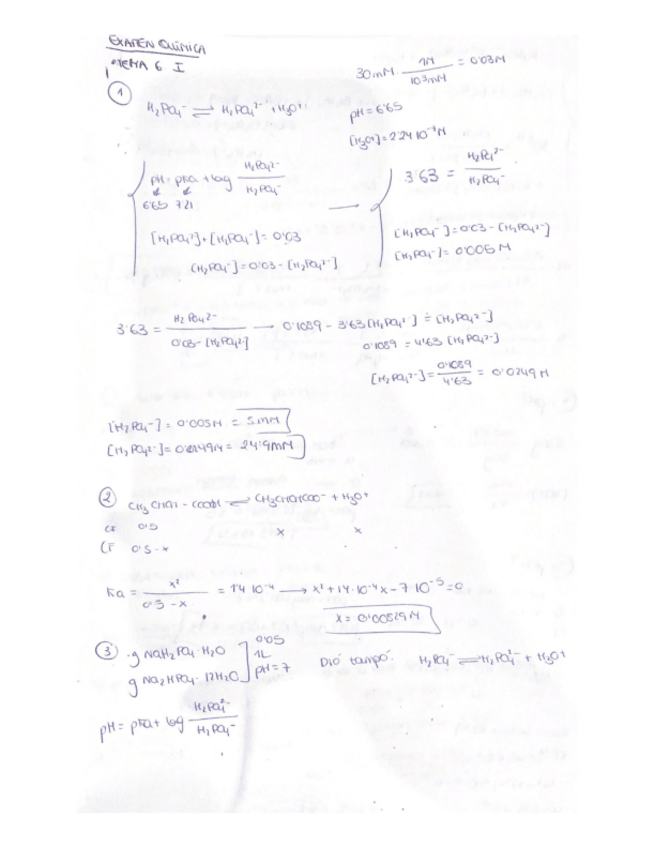 EXAMEN QUÍMICA
TEMA 6 I
30mM · 1M / 10³mM = 0'03M
1
H₂PO₄⁻ ⇌ H₁PO₄²⁻ + H₃O⁺
pH = 6'65
[H₃O⁺] = 2'24·10⁻⁷M
pH = pKa + log H₁PO₄²⁻ / H₂PO₄⁻
6'65 7'21
3'63 = H₂PO₄²⁻ / H₂PO₄⁻
[H₁PO₄²⁻] + [H₂PO₄⁻] = 0'03
[H₂PO₄⁻] = 0'03 - [H₁PO₄²⁻]
[H₂PO₄⁻] = 0'03 - [H₁PO₄²⁻]
[H₂PO₄⁻] = 0'005 M
3'63 = H₂PO₄²⁻ / 0'03 - [H₂PO₄²⁻] → 0'1089 - 3'63 [H₁PO₄²⁻] = [H₂PO₄²⁻]
0'1089 = 4'63 [H₁PO₄²⁻]
[H₂PO₄²⁻] = 0'1089 / 4'63 = 0'0249 M
[H₂PO₄⁻] = 0'005M = 5mM
[H₁PO₄²⁻] = 0'0249M = 24'9mM
2
CH₃CHOH - COOH ⇌ CH₃CHOHCOO⁻ + H₃O⁺
0'5 x x
CF 0'5 - x
Ka = x² / 0'5 - x = 1'4·10⁻⁴ → x² + 1'4·10⁻⁴x - 7·10⁻⁵ = 0
x = 0'00829M
3
g NaH₂PO₄·H₂O
g Na₂HPO₄·12H₂O
0'05
1L
pH = 7
Dió tampó: H₂PO₄⁻ ⇌ H₁PO₄²⁻ + H₃O⁺
pH = pKa + log H₁PO₄²⁻ / H₂PO₄⁻